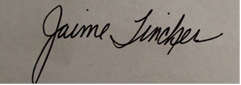 Jaime Tincher